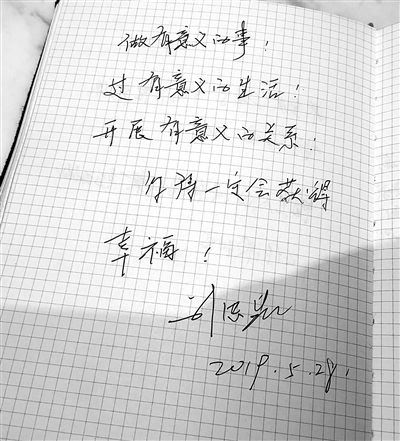 做有意义的事!
过有意义的生活!
开展有意义的关系!
你将一定会获得
幸福!
2019.5.28.